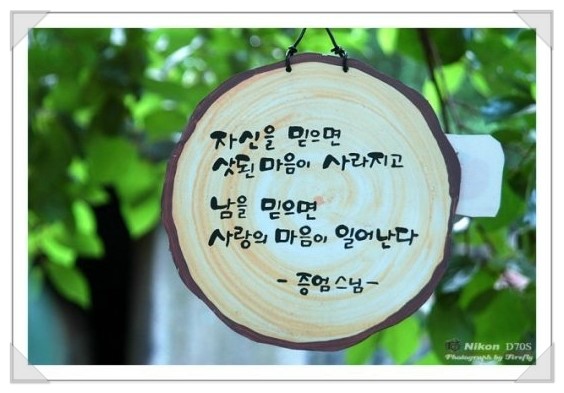 자신을 믿으면
삿된 마음이 사라지고
남을 믿으면
사랑의 마음이 일어난다
- 증엄스님 -
Nikon D70S
Photograph by Firefly